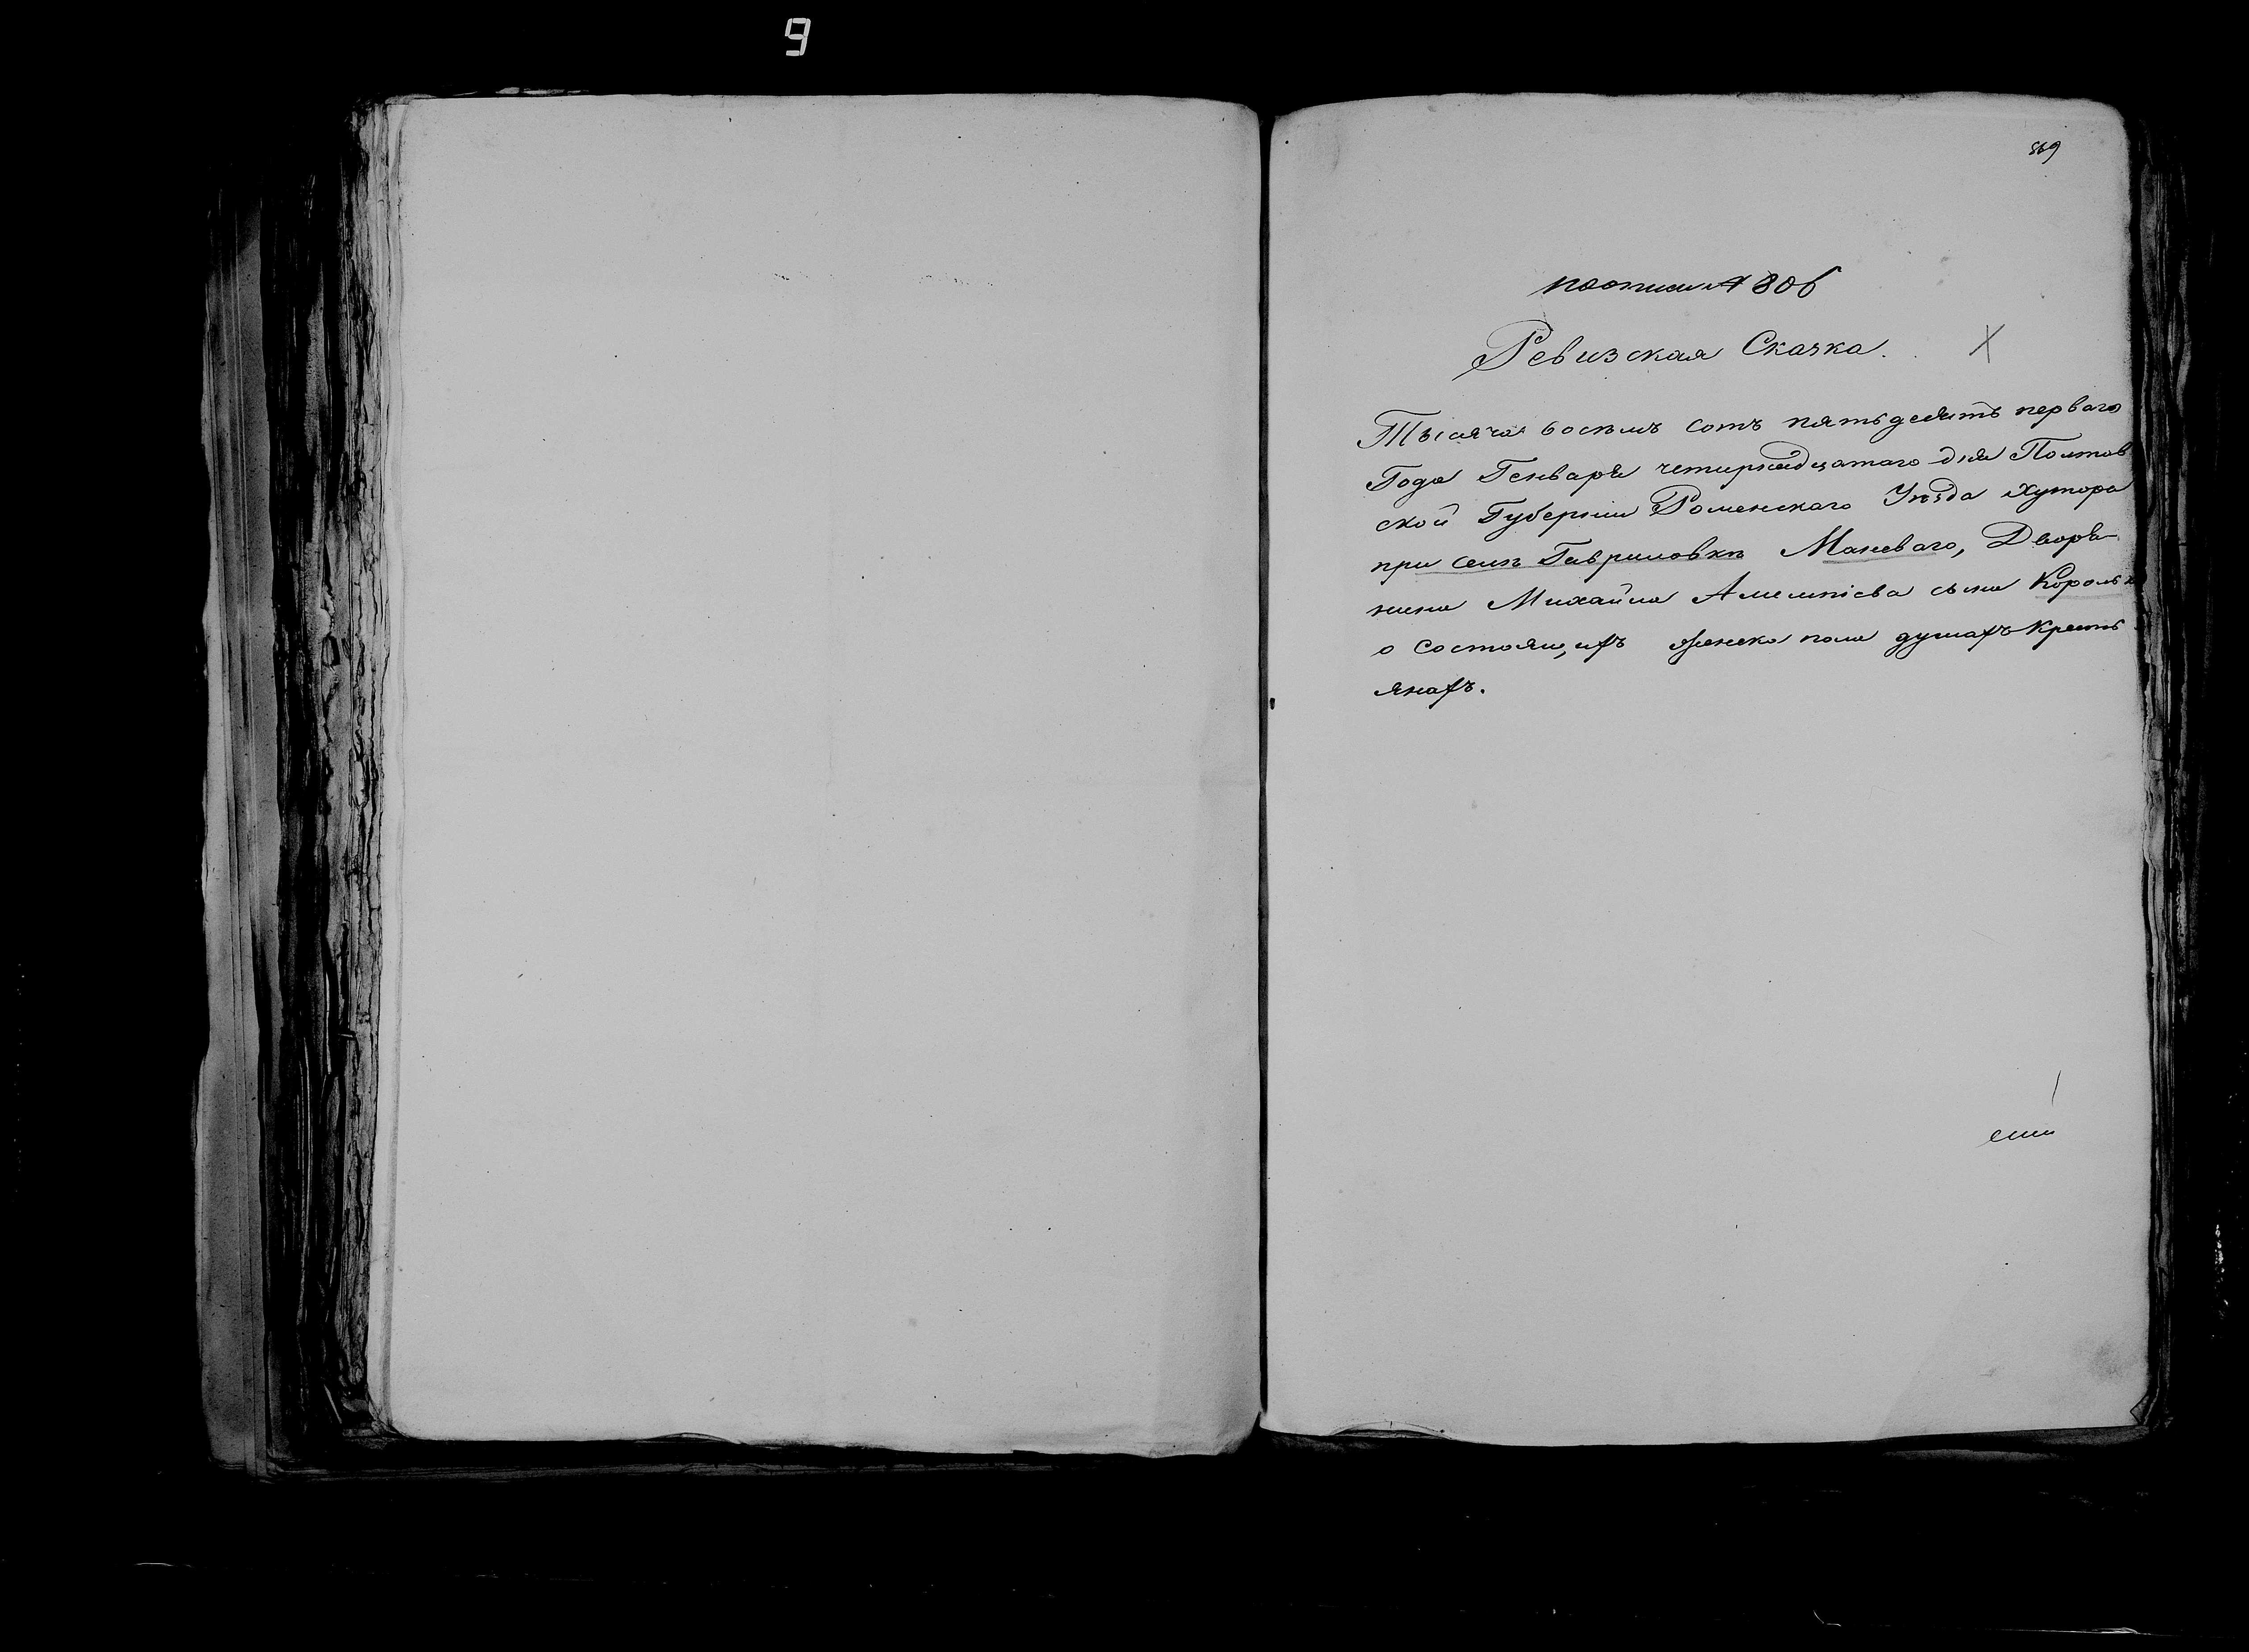 9
869
по описи № 806
Ревизская Сказка.
Тысяча восемъ сотъ пятьдесятъ перваго
Года Генваря четирнадцатаго дня Полтов
ской Губернии Роменскаго Уезда Хутора
при селе Гавриловке Маневаго, Дворя-
нина Михайла сына
о состоящихъ женска пола душахъ кресть
янахъ.